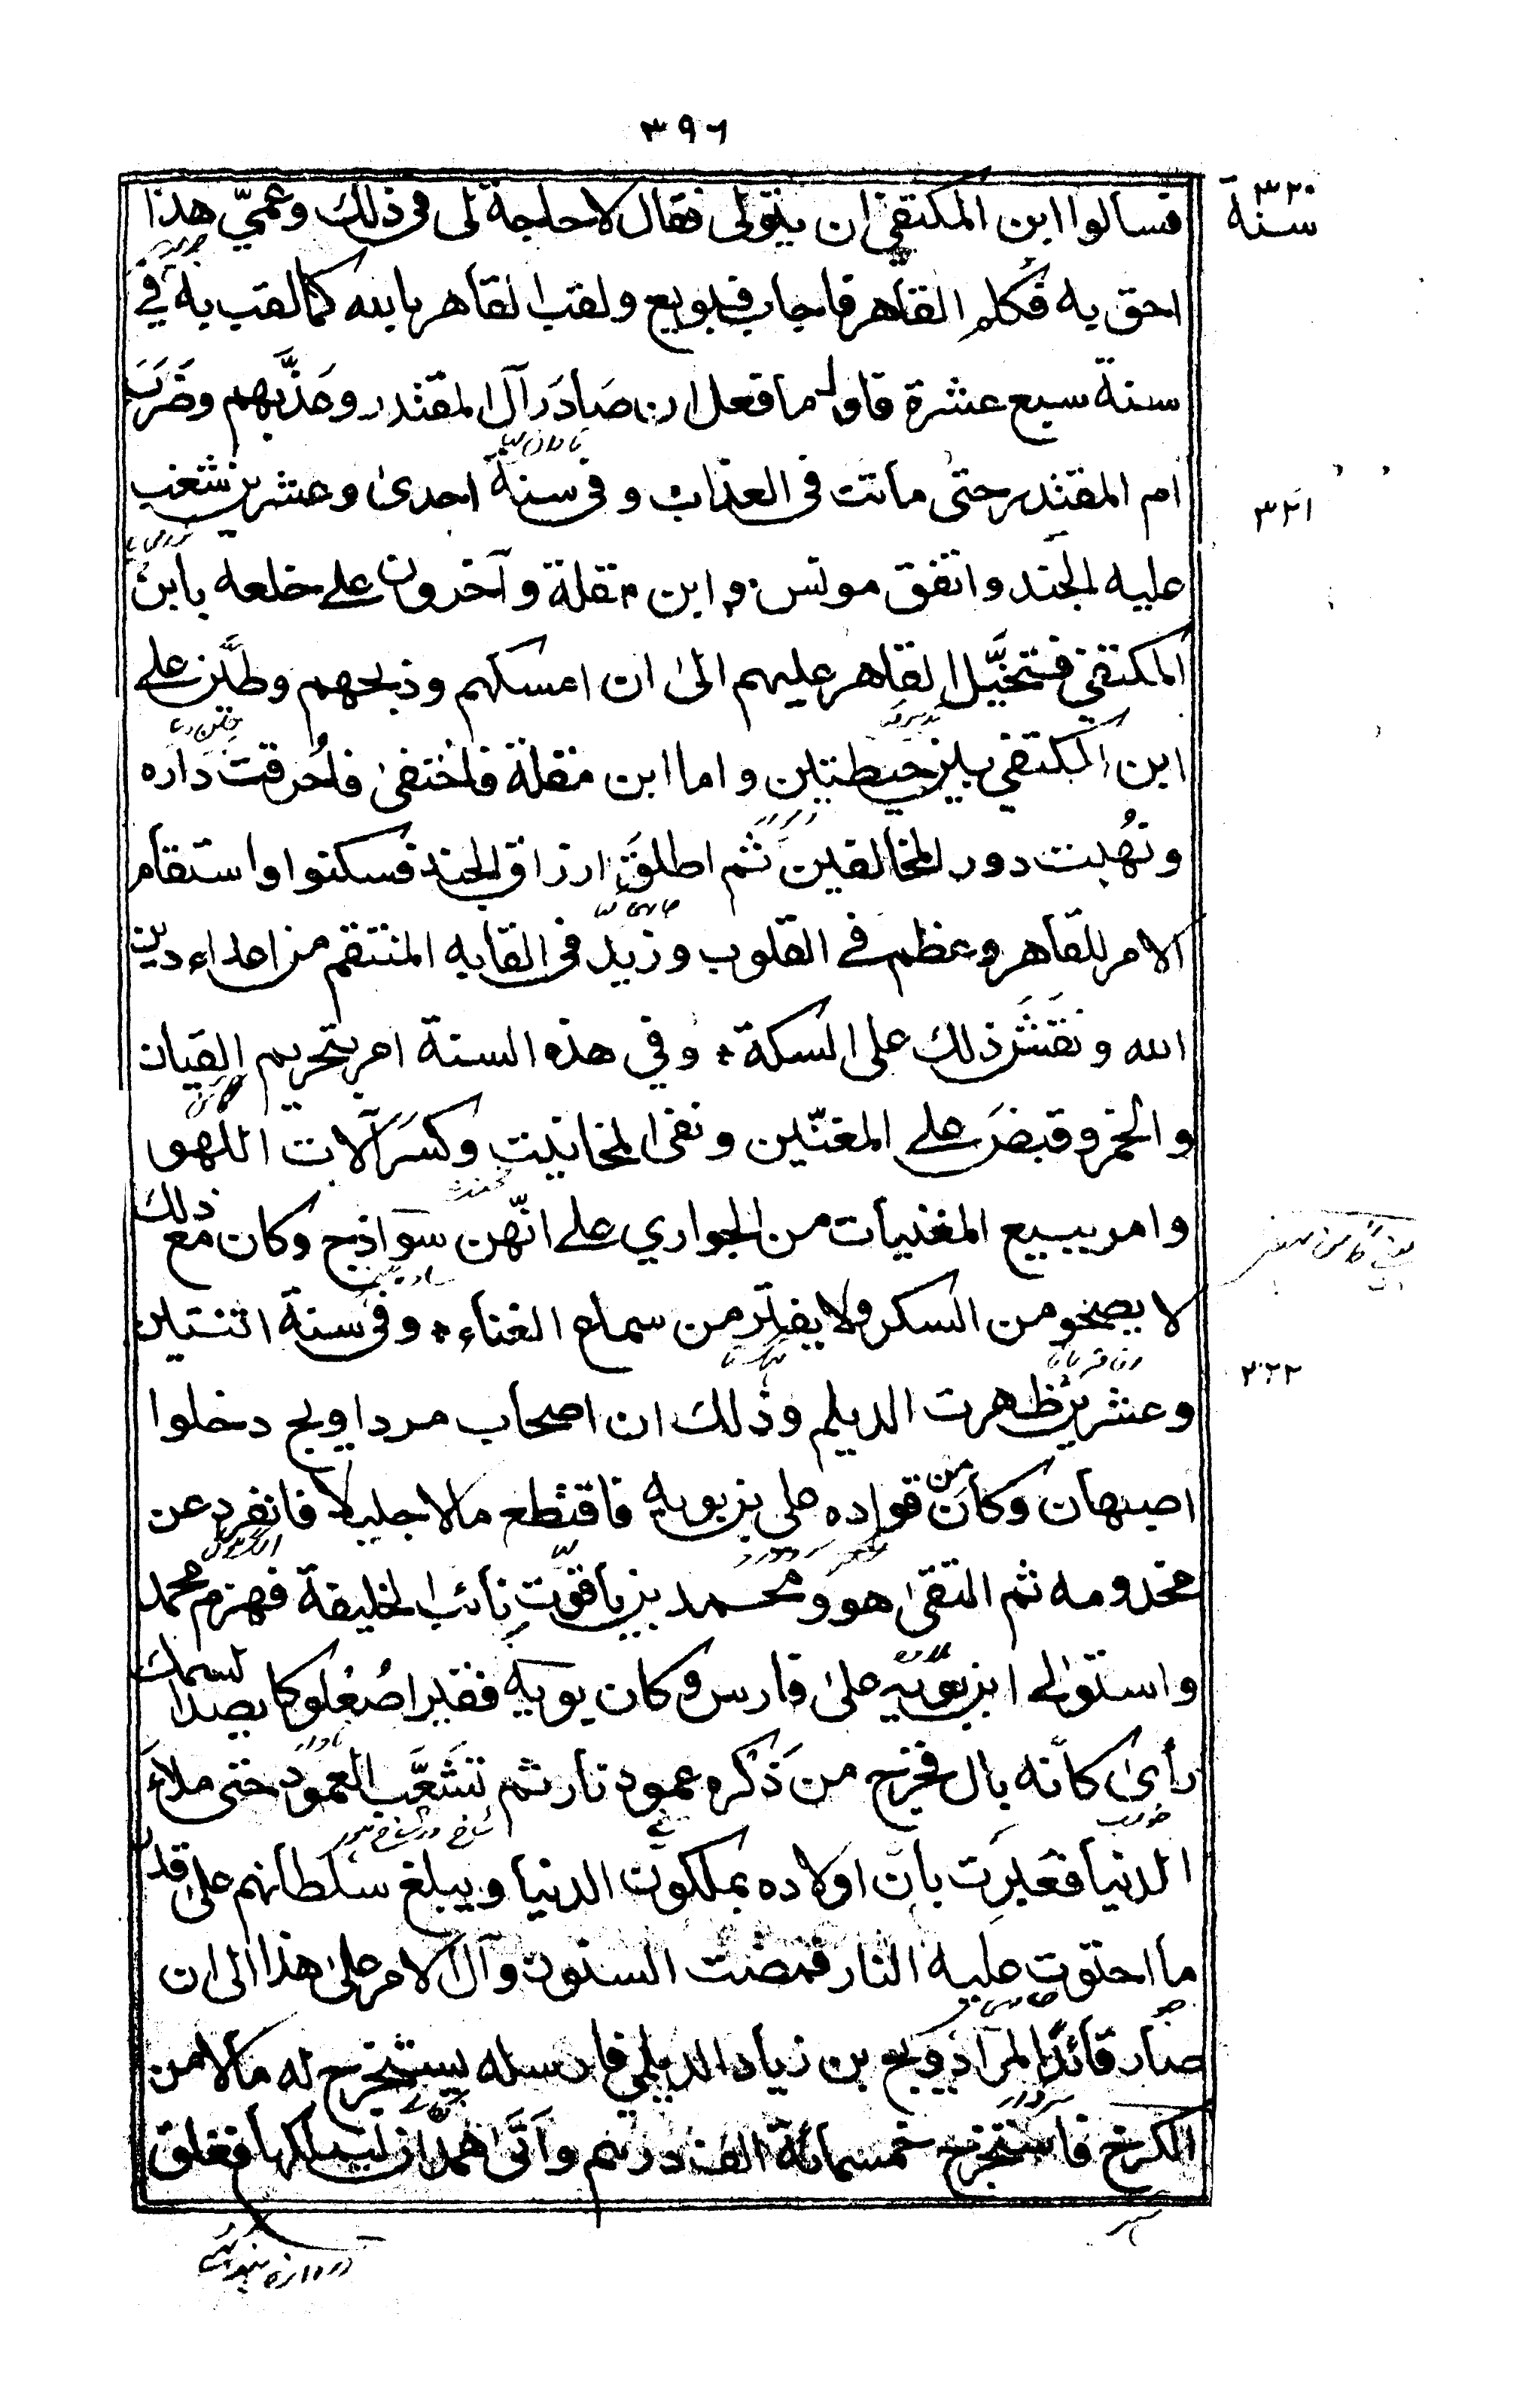 ٣٩٦
سنة ٣٢٠
فسالوا ابن المكتفي ان يتولى فقال لا حاجة لى فى ذلك وعمّي هذا
احق به فكلم القاهر فاجاب فبويع ولقب القاهر بالله كما لقب به في
سنة سبع عشرة فاول ما فعل ان صَادَر آل المقتدر وعَذَّبهم وضَرَبَ
ام المقتدر حتى ماتت فى العذاب و فى سنة احدىٰ وعشرين شغب
٣٢١
عليه الجند واتفق مونس و ابن مقلة و آخرون علے خلعه بابن
المكتفي فتحيَّل القاهر عليهم الىٰ ان امسكهم وذبحهم وطيَّن علے
ابن المكتفي بين حيطتين و اما ابن مقلة فاختفىٰ فاُحرقت داره
ونُهبت دور المخالفين ثم اطلقَ ارزاق الجند فسكنوا واستقام
الامر للقاهر وعظم فے القلوب و زيد فى القابه المنتقم من اعداء دين
الله و نقَشَ ذلك على السكة ؛ وفي هذه السنة امر بتحريم القيان
والخمر وقبضَ علے المغنّين و نفى المخانيث وكسَر آلات اللهو
وامر ببيع المغنيات من الجواري علے انّهن سواذج وكان مع ذلك
لا يصحو من السكر ولا يفتر من سماع الغناء ؛ و فى سنة اثنتين
٣٢٢
وعشرين ظهرت الديلم وذلك ان اصحاب مرداويج دخلوا
اصبهان وكان من قواده على بن بويه فاقتطع مالا جليلا فانفرد عن
مخدومه ثم التقىٰ هو ومحمد بن ياقوت نائب الخليفة فهزم محمد
واستولے ابن بويه علىٰ فارس وكان بويه فقيرا صُعلوكا يصيد السمك
رأىٰ كانّه بال فخرج من ذكره عمود نار ثم تشَعَّب العمود حتى ملاءَ
الدنيا فعبرت بان اولاده يملكون الدنيا ويبلغ سلطانهم علىٰ قدر
ما احتوت عليه النار فمضت السنون وآل الامر علىٰ هذا الى ان
صار قائدًا لمرداويج بن زياد الديلمي فارسله يستخرج له مالا من
الكرخ فاستخرج خمسمائة الف درهم وآتى همدان ليملكها فغلق